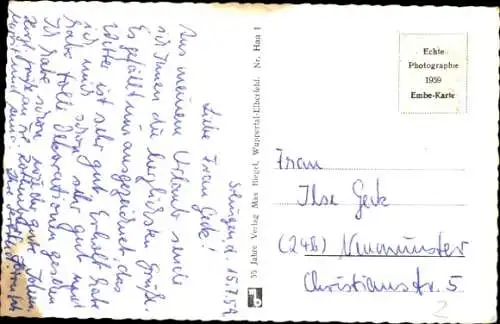 Schüpfd. 15.7.59
Liebe Frau Geck!
Aus meinem Urlaub sende
ich Ihnen die herzlichsten Grüße.
Es gefällt mir ausgezeichnet. Das
Wetter ist sehr gut. Erholt hab
ich mich schon sehr gut und
habe tolle Dekorationen gesehen
Ich habe schon
Herzl. Grüße an
55 Jahre Verlag Max Biegel, Wuppertal-Elberfeld. Nr. Haa 1
Echte
Photographie
1959
Embe-Karte
Frau
Ilse Geck
(24b) Neumünster
Christianstr. 5
2